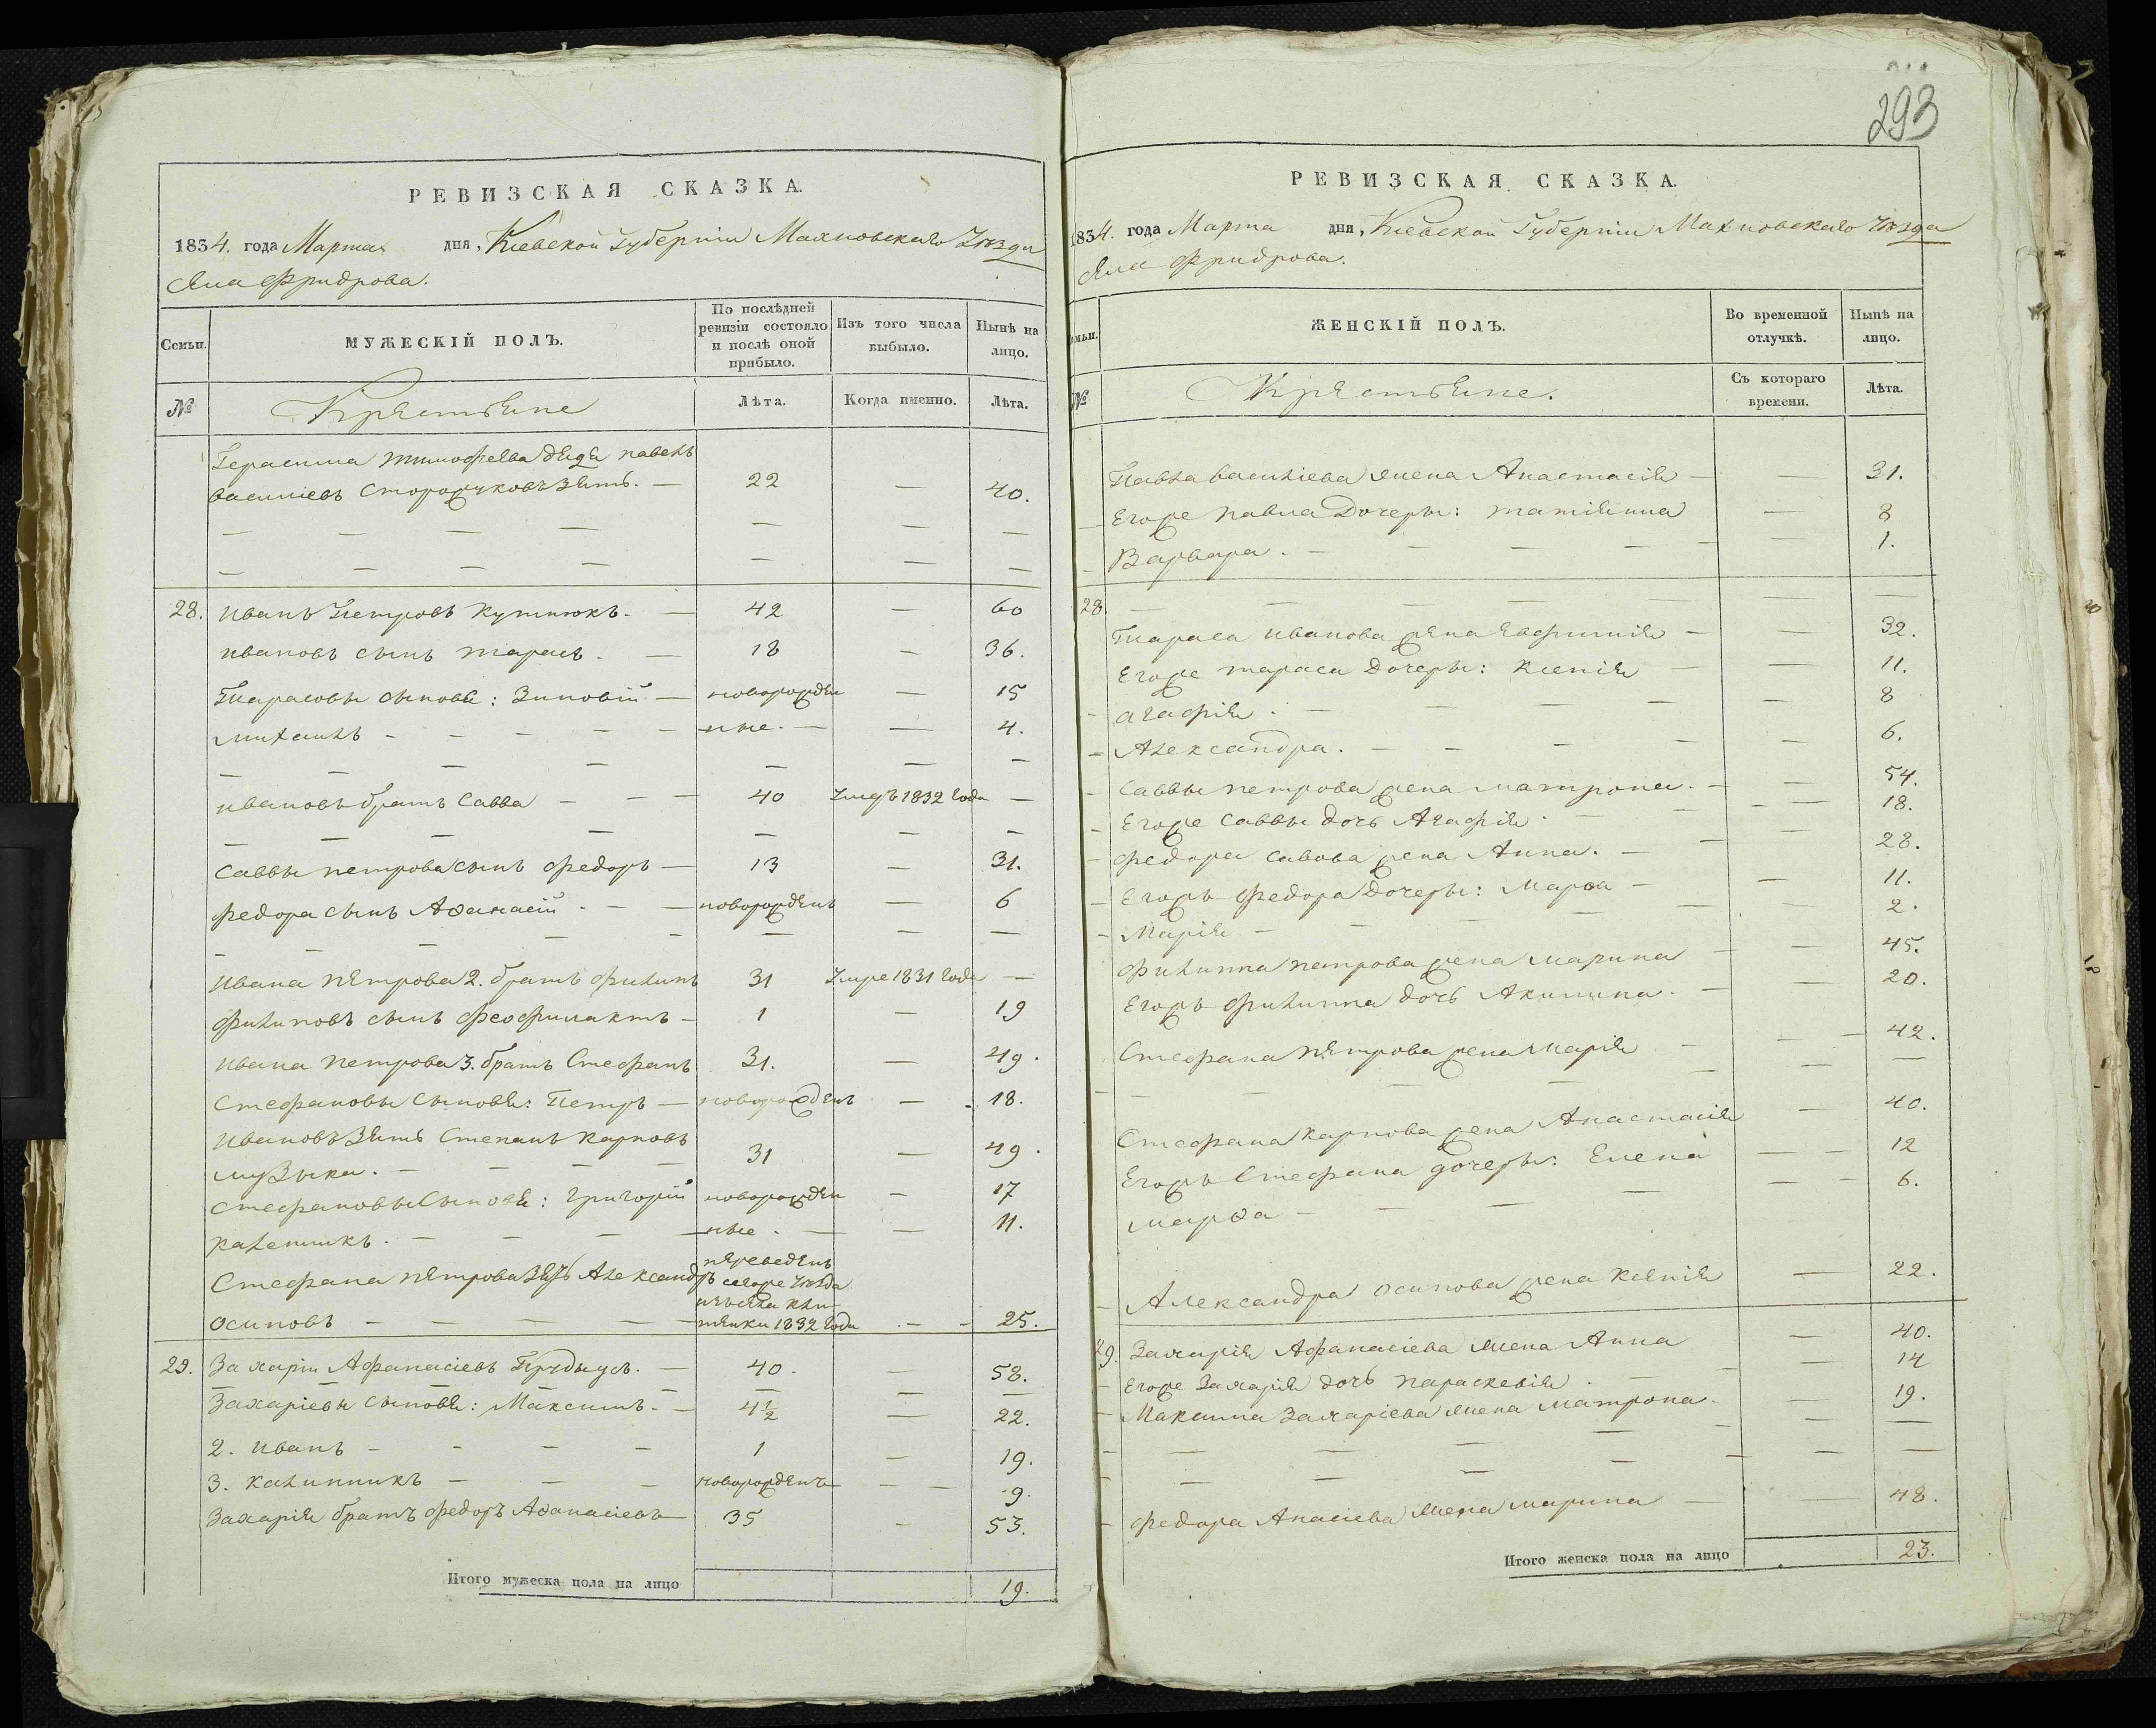 РЕВИЗСКАЯ СКАЗКА.
1834. года Марта дня, Кіевской Губерніи Махновскаго Уѣзда
Фридрова.
Семьи.
МУЖЕСКІЙ ПОЛЪ.
По послѣдней ревизіи состояло и послѣ оной прибыло.
Изъ того числа выбыло.
Нынѣ на лицо.
№
Крестьяне
Лѣта.
Когда именно.
Лѣта.
Герасима тимофеева павелъ
василіевъ зять. — 22 — 40.
— — — — — — —
— — — — — — —
28. иванъ Петровъ — 42 — 60
ивановъ сынъ тарасъ. — 18 — 36.
Тарасовы сыновя: Зиновій — новорожден — 15
михаилъ — — — — ные. — — 4.
— — — — — — —
ивановъ братъ Савва — — — 40 Умеръ 1832 года —
— — — — — — —
Саввы петрова сынъ федоръ — 13 — 31.
федора сынъ Аѳанасій. — — новорожденъ — 6
— — — — — — —
ивана петрова 2. братъ филипъ 31 Умре 1831 года —
филиповъ сынъ феофилактъ — 1 — 19
ивана петрова 3. братъ Стефанъ 31. — 49.
Стефановы Сыновя: Петръ — новорожденъ — 18.
ивановъ зять Степанъ карповъ
музыка. — — — — 31 — 49.
стефановы Сыновя: григорій новорожден — 17
каленикъ. — — — — ные. — — 11.
Стефана петрова зять Александръ переведенъ
сего же Уѣзда
осиповъ — — — — 1832 года — — 25.
29. Захарій Афанасіевъ — 40. — 58.
— — — — — — —
Захаріевы сыновя: Максимъ. — 4½ — 22.
2. иванъ — — — — 1 — 19.
3. калинникъ — — — новорожденъ — — 9.
Захарія братъ федоръ Аѳанасіевъ — 35 — 53.
Итого мужеска пола на лицо 19.
293
РЕВИЗСКАЯ СКАЗКА.
1834. года Марта дня, Кіевской Губерніи Махновскаго Уѣзда
Фридрова.
Семьи.
ЖЕНСКІЙ ПОЛЪ.
Во временной отлучкѣ.
Нынѣ на лицо.
№
Крестьяне.
Съ котораго времени.
Лѣта.
Павла василіева жена Анастасія — — 31.
Егоже павла Дочеры: татіянна — 8
Варвара. — — — — — 1.
28. — — — — — —
Тараса иванова жена Евфимія — — 32.
Егоже тараса Дочеры: ксенія — — 11.
агафія. — — — — — 8
Александра. — — — — — 6.
Саввы петрова жена матрона. — — 54.
Егоже Саввы дочь Агафія. — — — 18.
федора савова жена Анна. — — 28.
Егожъ федора Дочеры: Марѳа — — 11.
Марія — — — — — 2.
филиппа петрова жена марина — — 45.
Егожъ филиппа дочь Акилина. — — 20.
Стефана петрова жена марія — — 42.
— — — — — —
Стефана карпова жена Анастасія — 40.
Егожъ Стефана дочеры: Елена — — 12
марѳа — — — — — 6.
Александра осипова жена ксенія — 22.
29. Захарія Афанасіева жена Анна — 40.
Егоже Захарія дочь параскевія. — — 14
Максима Захаріева жена матрона. — 19.
— — — — — —
— — — — — —
федора Анасіева жена марина — — 48.
Итого женска пола на лицо 23.